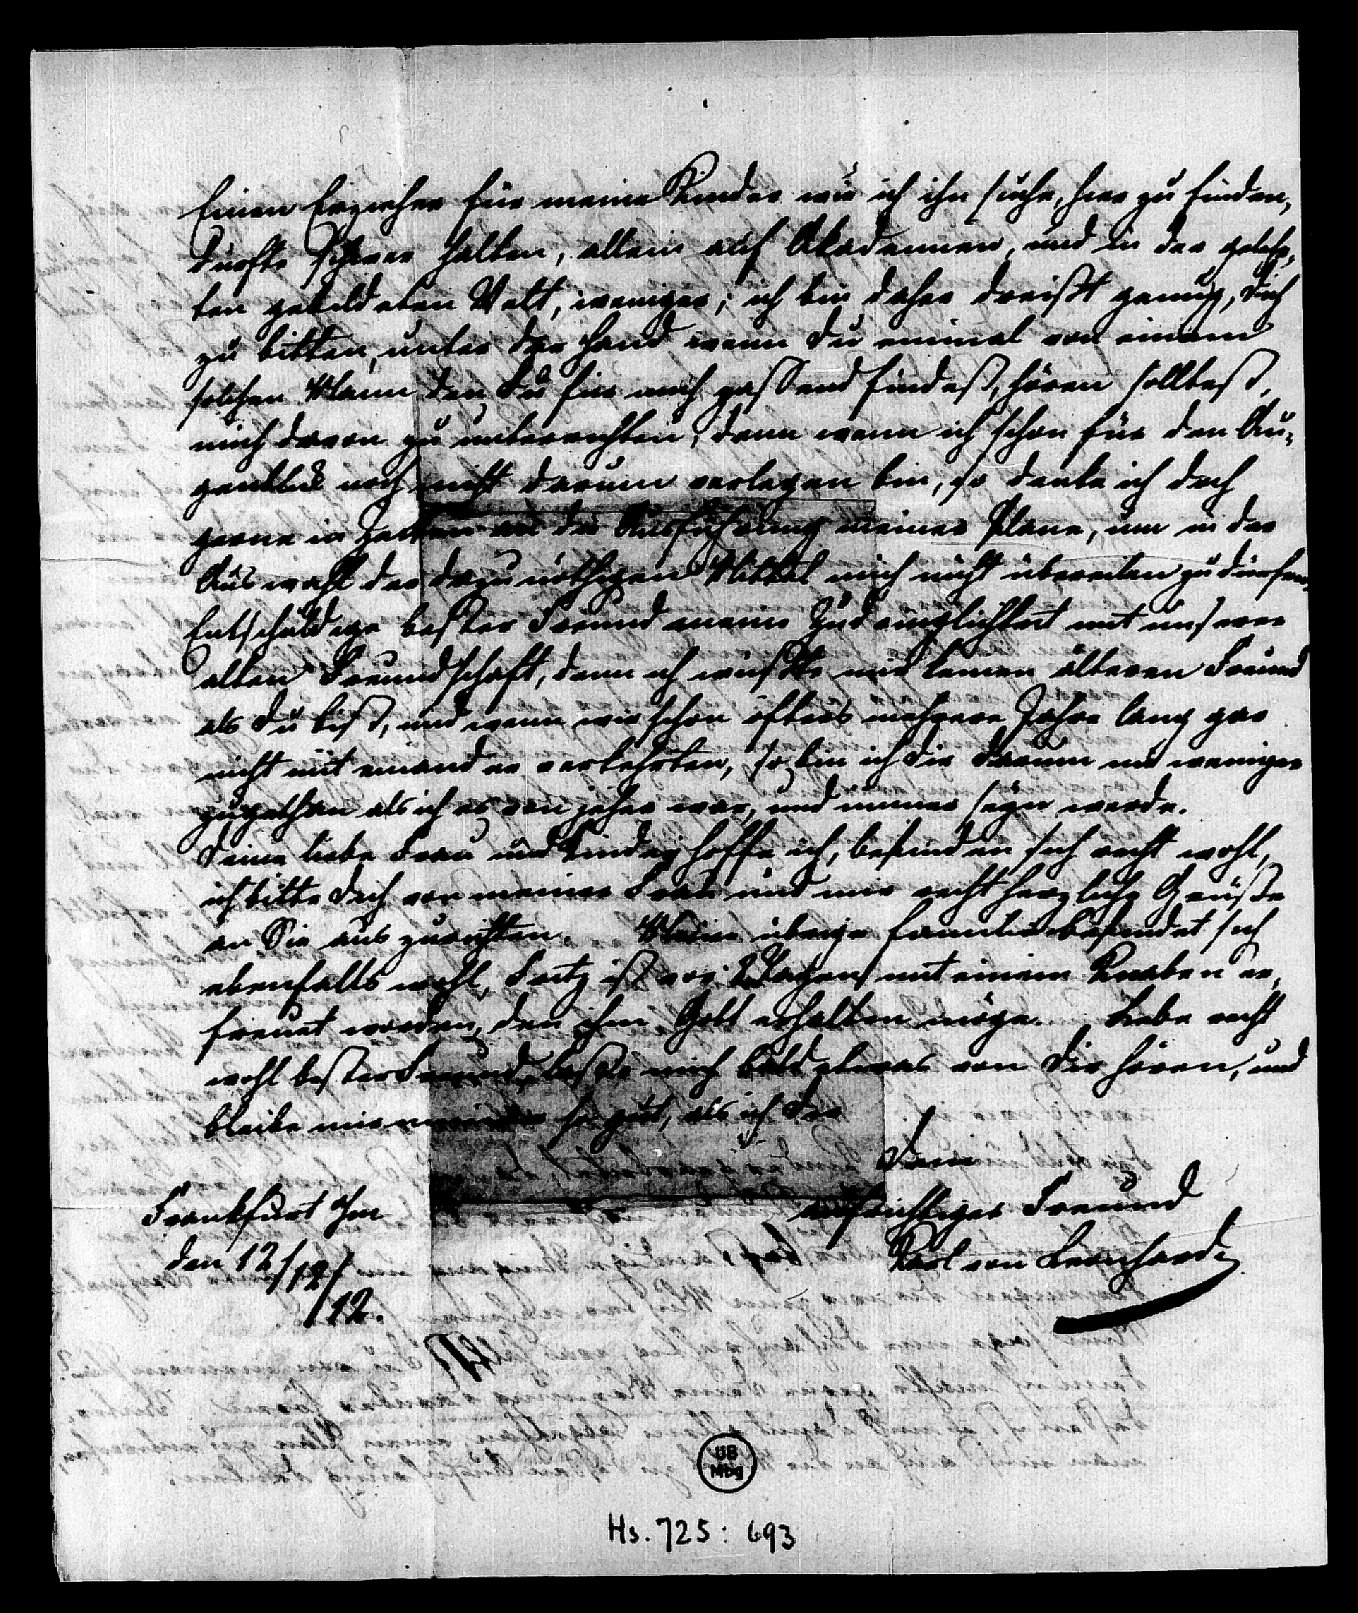 Einen Erzieher für meine Kinder wie ich ihn suche, hier zu finden,
dürfte schwer halten, allein auf Akademien, und in der gelehr-
ten gebildeten Welt, weniger; ich bin daher dreist genug, Dich
zu bitten, unter der Hand wenn Du einmal von einem
solchen Mann den Du für mich passend findest, hören solltest,
mich davon zu unterrichten, denn wenn ich schon für den Au-
genblick noch nicht darum verlegen bin, so denke ich doch
gerne in Zeiten an die Ausführung meiner Plane, um in der
Auswahl der dazu nöthigen Mittel mich nicht übereilen zu dürfen.
Entschuldige bester Freund meine Zudringlichkeit mit unserer
alten Freundschaft, denn ich wüßte mir keinen älteren Freund
als Du bist, und wenn wir schon öfters mehrere Jahre lang gar
nicht mit einander verkehrten, so bin ich Dir darum nie weniger
zugethan als ich es von jeher war, und immer seyn werde.
Deine liebe Frau und Kinder hoffe ich, befinden sich recht wohl,
ich bitte Dich von meiner Frau und mir recht herzliche Grüße
an Sie auszurichten. Meine übrige Familie befindet sich
ebenfalls wohl, Fritz ist vor 2 Tagen mit einem Knaben er-
freuet worden, den ihm Gott erhalten möge. Lebe recht
wohl bester Freund, laße mich bald etwas von Dir hören, und
bleibe mir so gut, als ich Dir
Dein
aufrichtiger Freund
Karl von Leonhardi
Frankfurt /m
den 12/12/
/12.
UB
Mbg
Hs. 725: 693